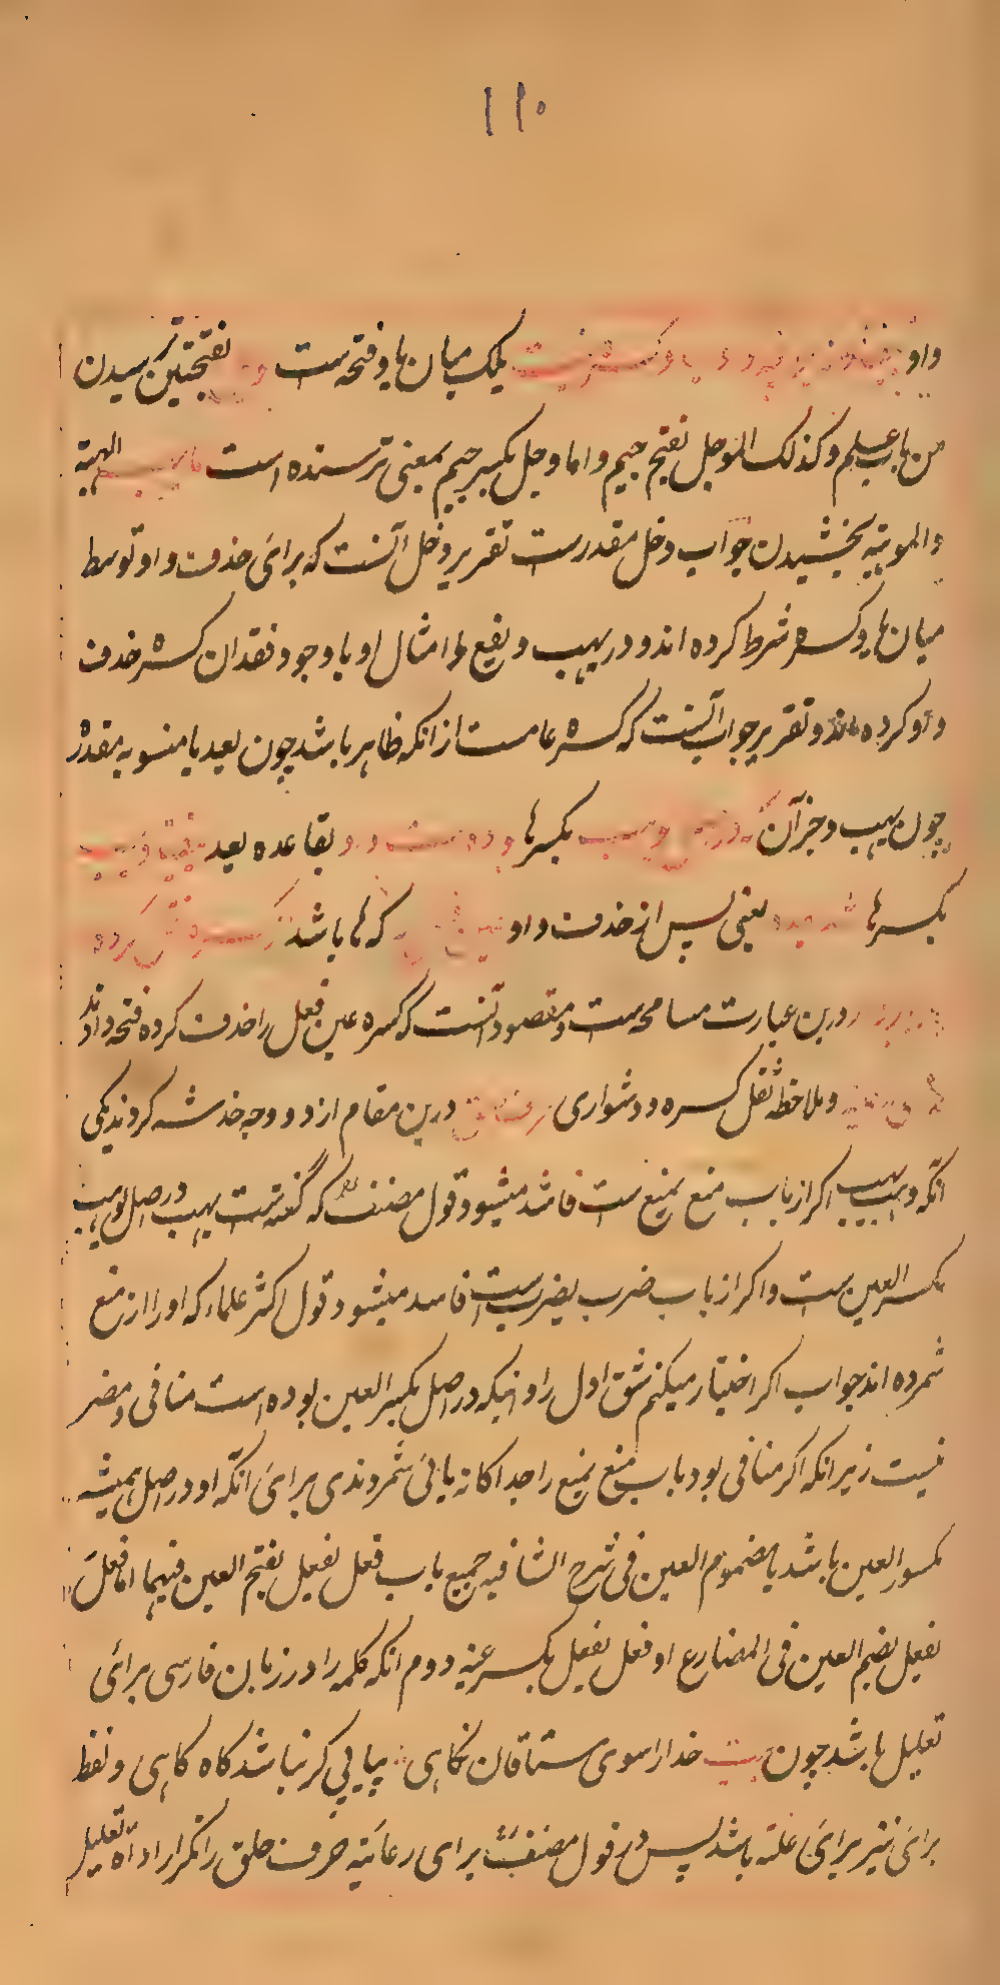 ۱۱۰
واو بیک میان یا و فتحه ست بفتحتین ترسیدن
من باب علم وکذلک الموجل بفتح جیم و اما وجل بکسر جیم بمعنی ترسنده است الهبة
والموهبة بخشیدن جواب دخل مقدرست تقریر دخل آنست که برای حذف واو توسط
میان یا و کسره شرط کرده اند و در یهب و یضع و امثال او با وجود فقدان کسره حذف
واو کرده اند و تقریر جواب آنست که کسره عامست از انکه ظاهر باشد چون یعد یا منسوبه مقدر
چون یهب و جز آن بکسر ها بقاعده یعد
بکسر ها یعنی پس از حذف واو که ها باشد
درین عبارت مسامحه ست و مقصود آنست که کسره عین فعل را حذف کرده فتحه دادند
و ملاحظه ثقل کسره و دشواری درین مقام از دو وجه خدشه کردند یکی
انکه وهب یهب اگر از باب منع یمنع ست فاسد میشود قول مصنف که گفته ست یهب در اصل یوهب
بکسر العین ست و اگر از باب ضرب یضرب ست فاسد میشود قول اکثر علماء که او را از منع
شمرده اند جواب اگر اختیار میکنم شق اول را و اینکه در اصل بکسر العین بوده است منافی و مضر
نیست زیرا انکه اگر منافی بود باب منع یمنع را جداگانه بابی شمردندی برای انکه او در اصل همیشه
مکسور العین باشد یا مضموم العین فی شرح الشافیه جمیع باب فعل یفعل بفتح العین فیهما اما فعل
یفعل بضم العین فی المضارع او فعل یفعل بکسر عینه دوم انکه کلمه را در زبان فارسی برای
تعلیل باشد چون بیت خدا را سوی مشتاقان نگاهی پیاپی گر نباشد گاه گاهی و لفظ
برای نیز برای علة باشد پس در قول مصنف برای رعایة حرف حلق را تکرار اداة تعلیل